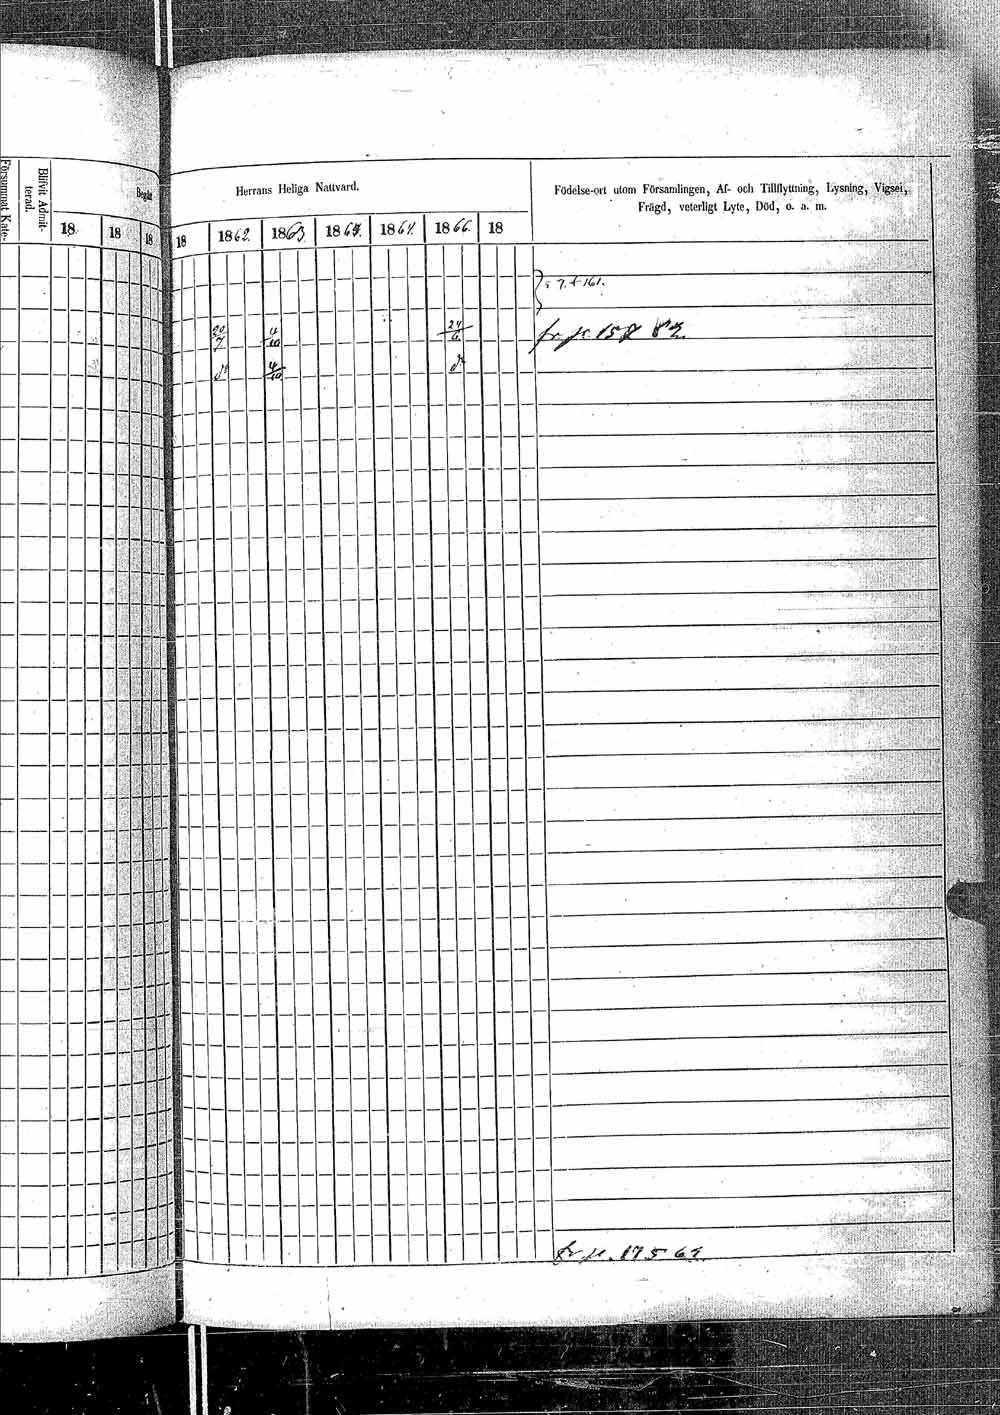 Församnat Kate-
Blifvit Admit-
terad.
Begått
18 18 18
Herrans Heliga Nattvard.
18 1862. 1863. 1864. 1866. 18
Födelse-ort utom Församlingen, Af- och Tillflyttning, Lysning, Vigsel,
Frägd, veterligt Lyte, Död, o. a. m.
20/7 4/10 24/6 fr p. 157
do 4/10 do
fr p. 175